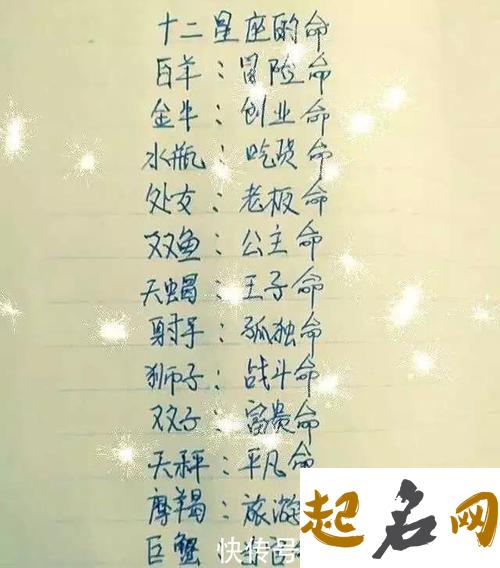 十二星座的命
白羊：冒险命
金牛：创业命
水瓶：吃货命
处女：老板命
双鱼：公主命
天蝎：王子命
射手：孤独命
狮子：战斗命
双子：富贵命
天秤：平凡命
摩羯：旅游
巨蟹：
起名网
快传号